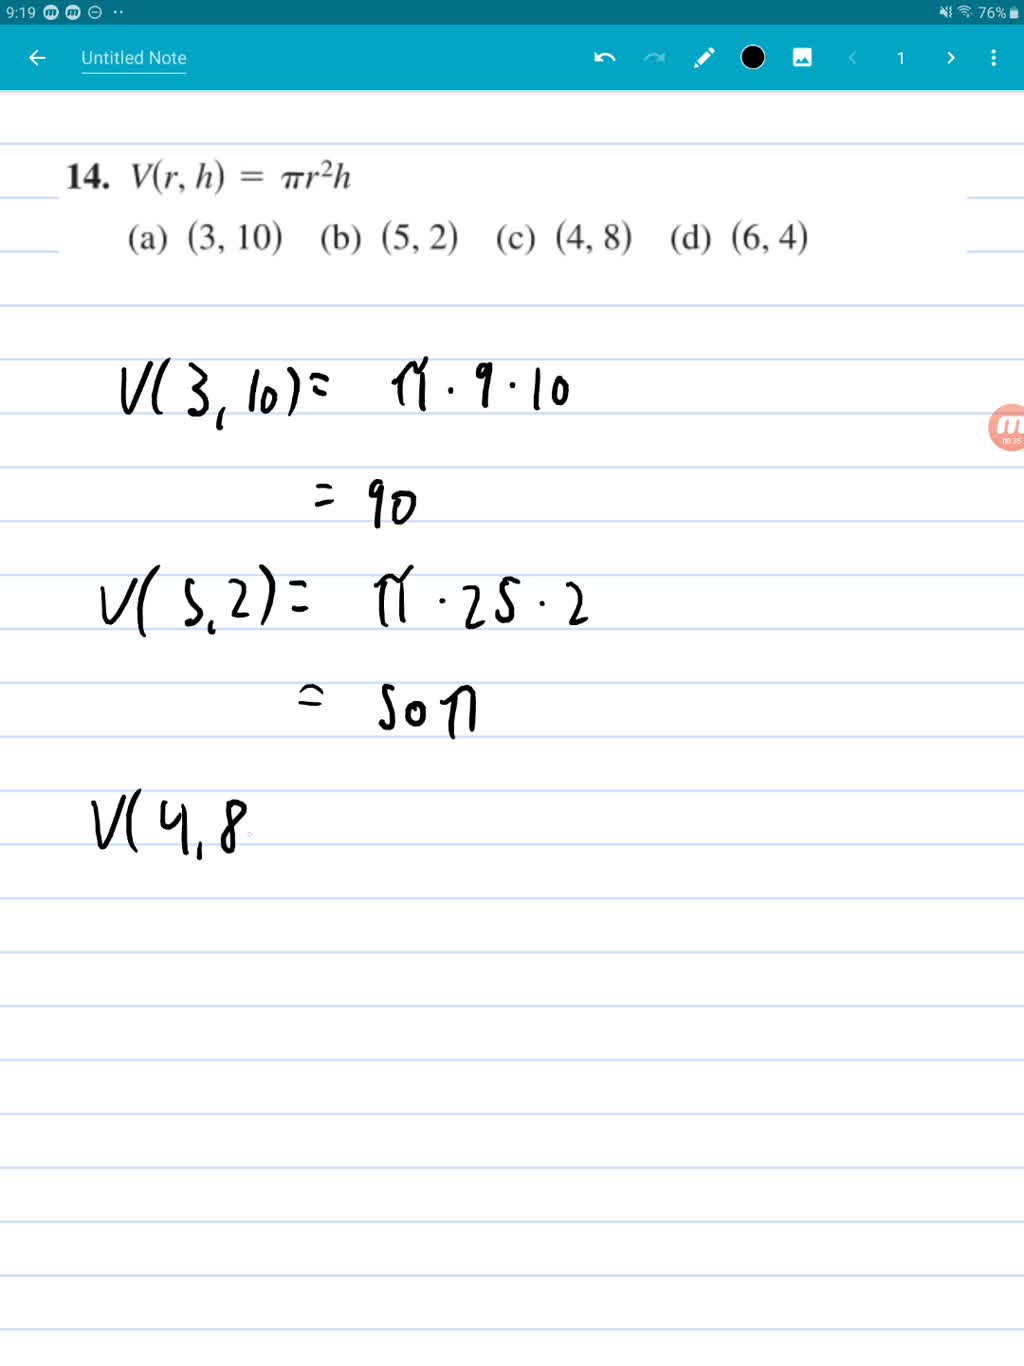 9:19 76%
Untitled Note 1
14. V(r, h) = πr²h
(a) (3, 10) (b) (5, 2) (c) (4, 8) (d) (6, 4)
V(3, 10) = π · 9 · 10
m
00:35
= 90
V(5, 2) = π · 25 · 2
= 50π
V(4, 8